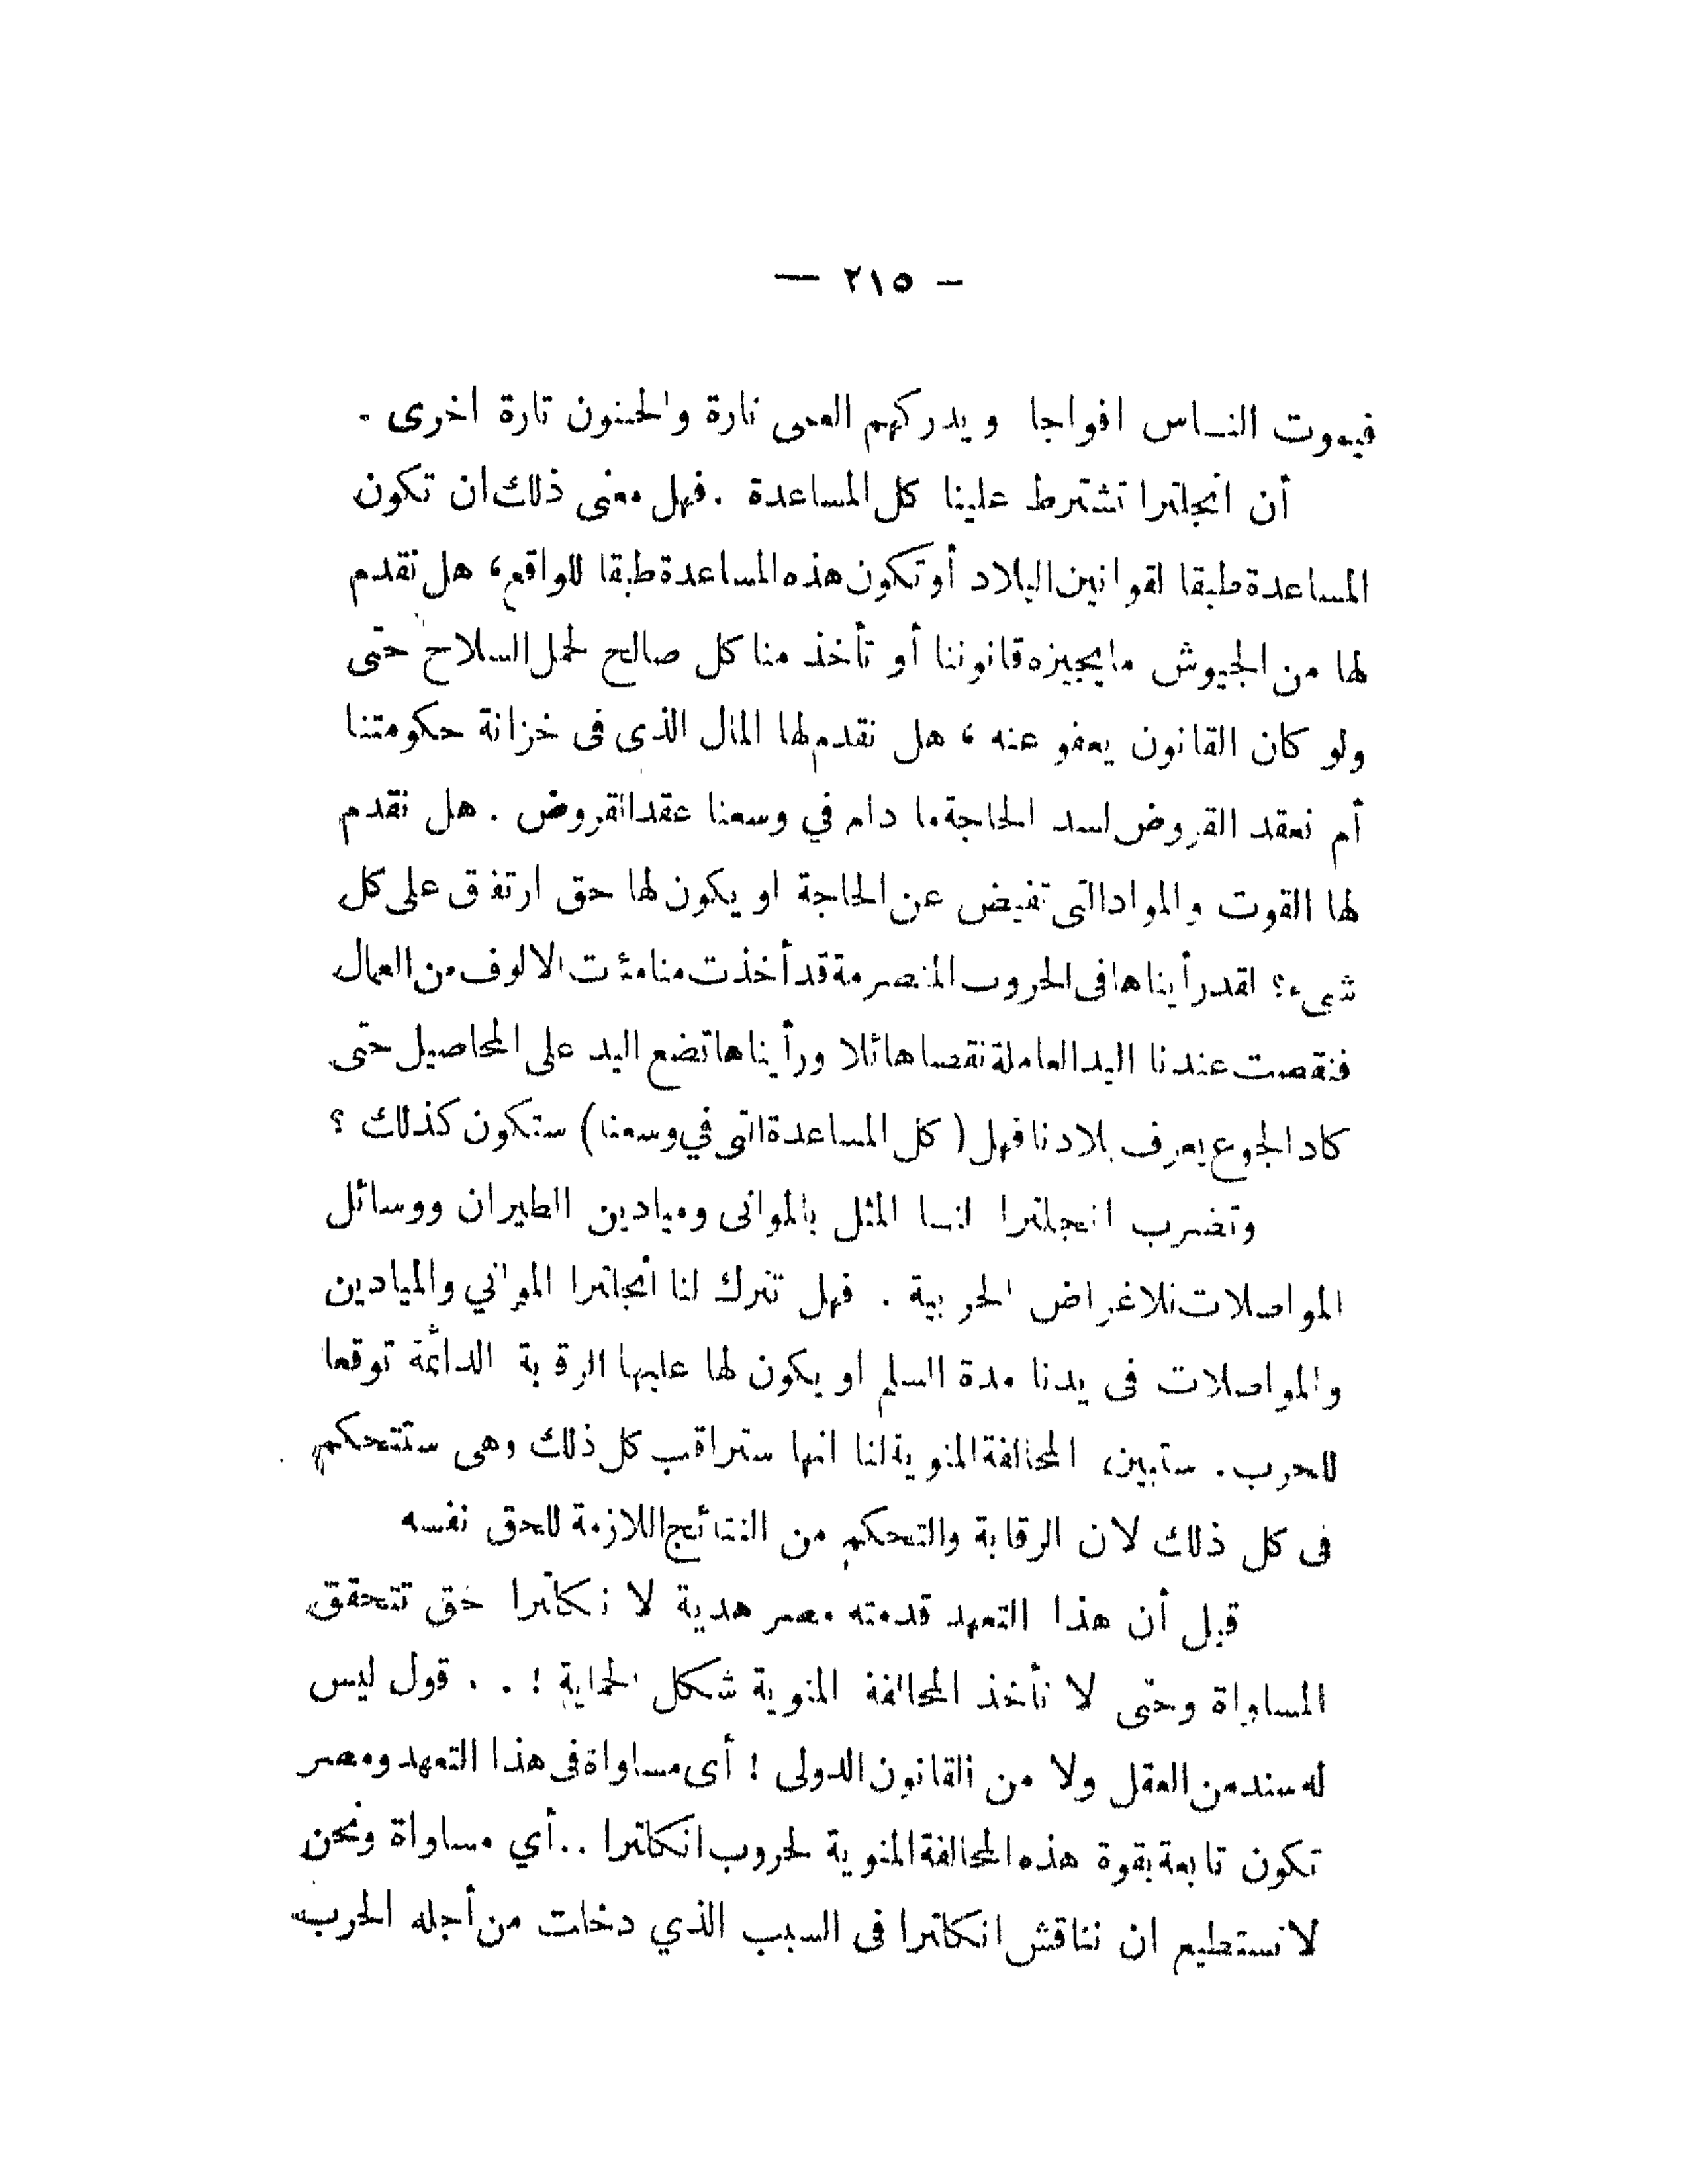 — ٢١٥ —
فيموت النـاس افواجا ويدركهم العمى تارة والجنون تارة اخرى .
أن انجلترا تشترط علينا كل المساعدة . فهل معنى ذلك ان تكون
المساعدة طبقا لقوانين البلاد أو تكون هذه المساعدة طبقا للواقع ، هل نقدم
لها من الجيوش مايجيزه قانوننا أو تأخذ منا كل صالح لحمل السلاح حتى
ولو كان القانون يعفو عنه ، هل نقدم لها المال الذى فى خزانة حكومتنا
أم نعقد القروض لسد الحاجة ما دام في وسعنا عقد القروض . هل نقدم
لها القوت والمواد التى تفيض عن الحاجة او يكون لها حق ارتفق على كل
شىء ؟ لقد رأيناها فى الحروب المنصرمة قد أخذت منا مئت الالوف من العمال
فنقصت عندنا اليد العاملة نقصا هائلا ورأيناها تضع اليد على المحاصيل حتى
كاد الجوع يعرف بلادنا فهل ( كل المساعدة التى في وسعنا ) ستكون كذلك ؟
وتضرب انجلترا لنـا المثل بالموانى وميادين الطيران ووسائل
المواصلات للاغراض الحربية . فهل تترك لنا انجلترا المواني والميادين
والمواصلات فى يدنا مدة السلم او يكون لها عليها الرقبة الدائمة توقعا
للحرب . ستبين المحالفة المنوية لنا انها ستراقب كل ذلك وهى ستتحكم
فى كل ذلك لان الرقابة والتحكم من النتائج اللازمة للحق نفسه
قيل أن هذا التعهد قدمته مصر هدية لا نكلترا حتى تتحقق
المساواة وحتى لا تأخذ المحالفة المنوية شكل الحماية ! . . قول ليس
له سند من العقل ولا من القانون الدولى ! أى مساواة فى هذا التعهد ومصر
تكون تابعة بقوة هذه المحالفة المنوية لحروب انكلترا .. أي مساواة ونحن
لا نستطيع ان نناقش انكلترا فى السبب الذي دخلت من أجله الحرب